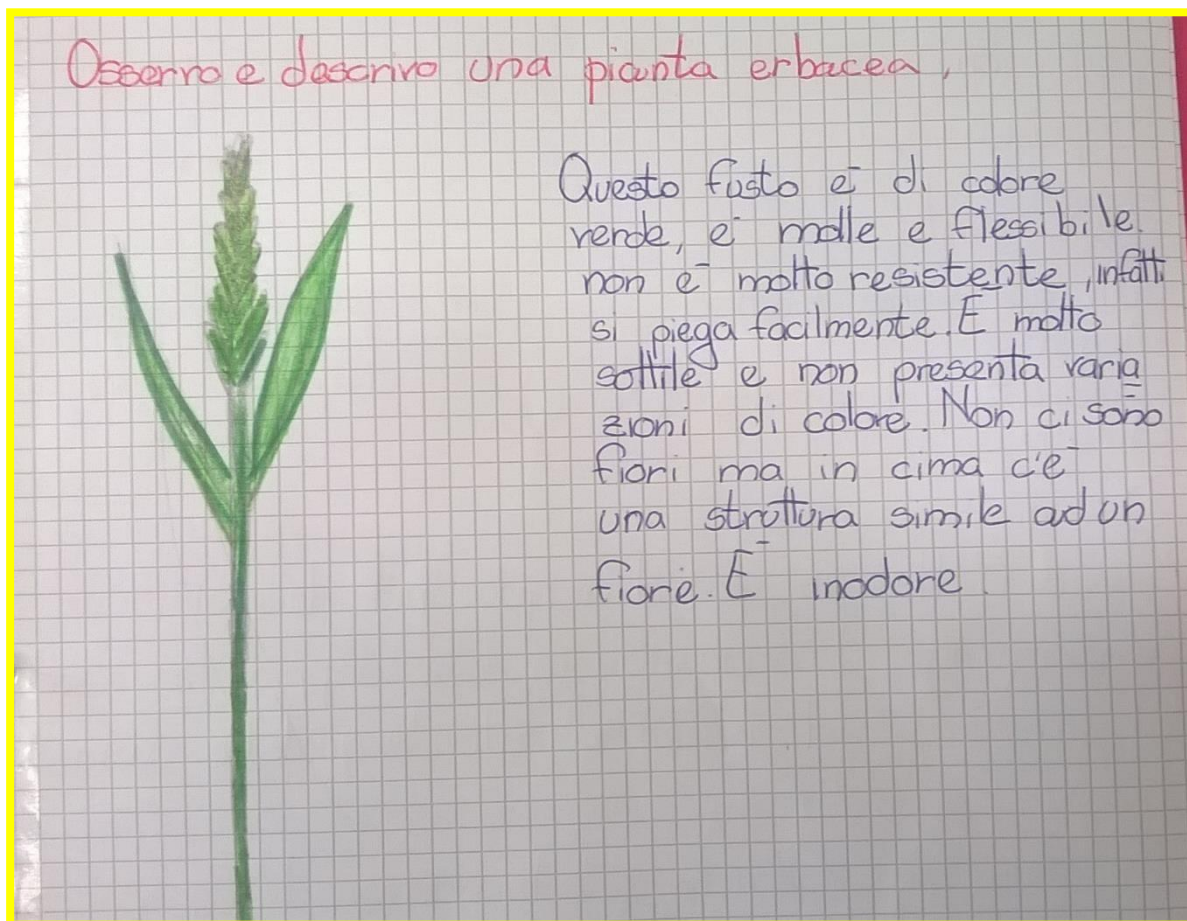 Osservo e descrivo una pianta erbacea,
Questo fusto è di colore
verde, è molle e flessibile.
non è molto resistente, infatti
si piega facilmente. E molto
sottile e non presenta varia
zioni di colore. Non ci sono
fiori ma in cima c'è
una struttura simile ad un
fiore. È inodore.